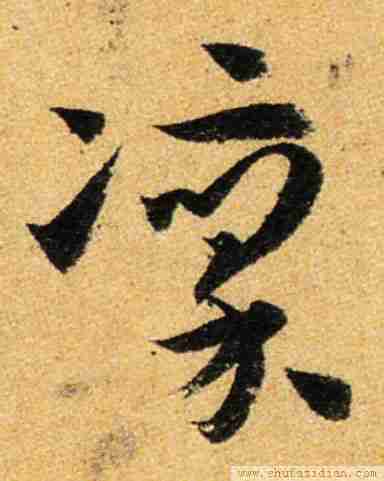 凛
www.shufazidian.com